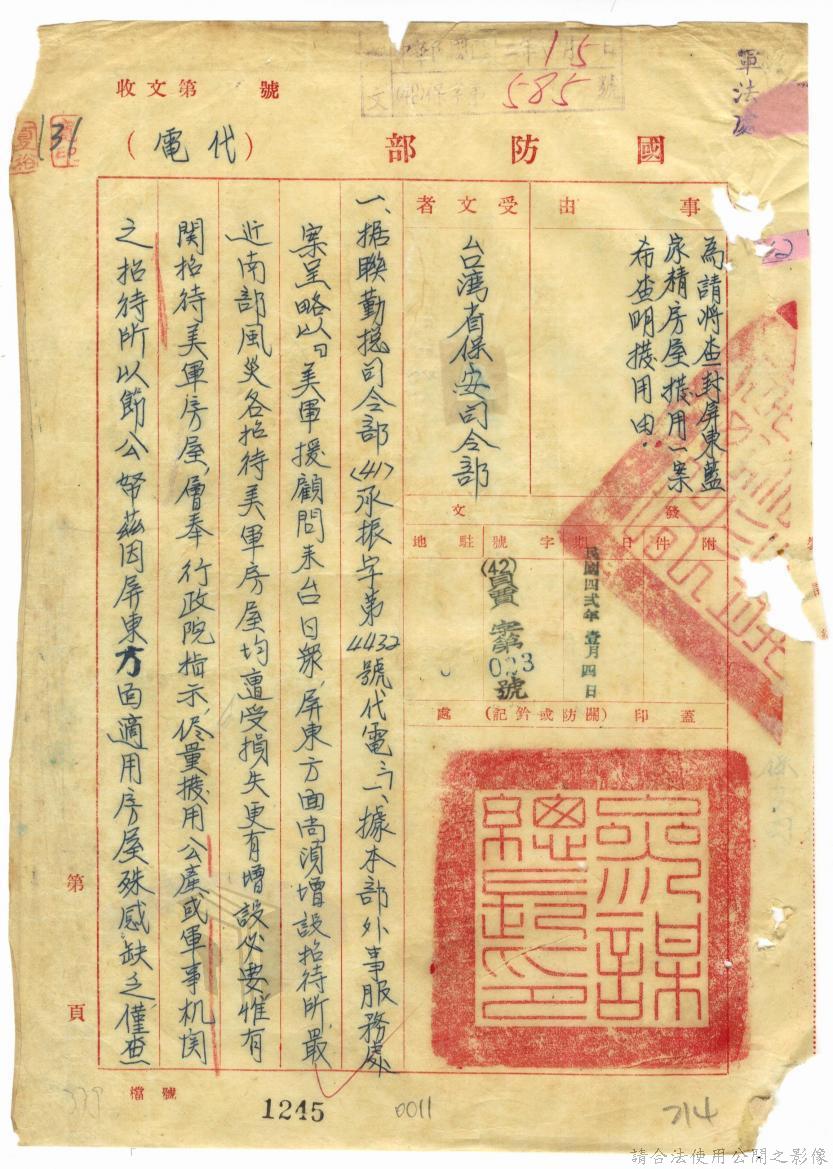 軍法處
年1月5日
文 585 號
收文第 號
131
國防部(代電)
事由
為請將查封屏東藍
家精房屋撥用一案
希查明撥用由.
受文者
台湾省保安司令部
發文
附件
日期
字號
駐地
民國四弍年壹月四日
(42) 字第023號
蓋印(關防或鈐記)處
參謀總長之印
一、据聯勤總司令部(41)承振字第4432號代電:「一、據本部外事服務處
案呈略以:美軍援顧問来台日衆,屏東方面尚須增設招待所,最
近南部風災各招待美軍房屋均遭受損失更有增設必要惟有
関招待美軍房屋,層奉 行政院指示,侭量撥用公產或軍事机関
之招待所以節公帑茲因屏東方面適用房屋殊感缺乏僅查
第 頁
檔號
1245
0011
214
請合法使用公開之影像